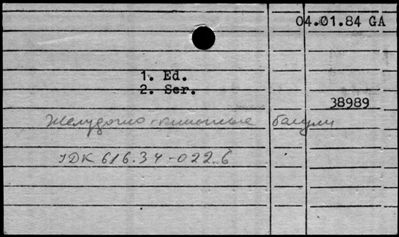 04.01.84 GA
1. Ed.
2. Ser.
38989
Желудочно-кишечные
УДК 616.34-022.6